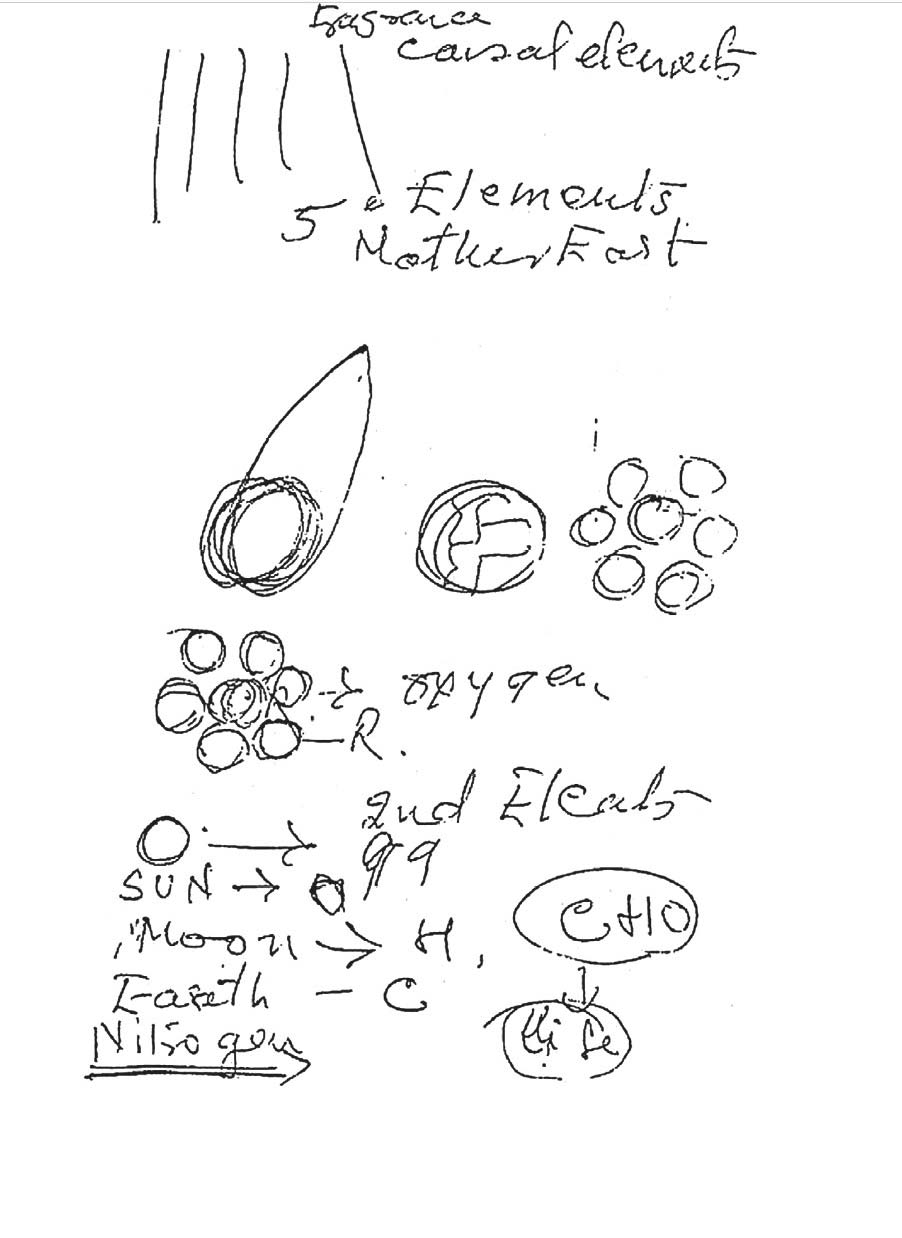 Fragrance
causal elements
5 Elements
Mother East
i
→ oxygen
— R.
2nd Eleats
99
SUN → O
Moon → H,
Eareth – C
CHO
Nitrogen
Life